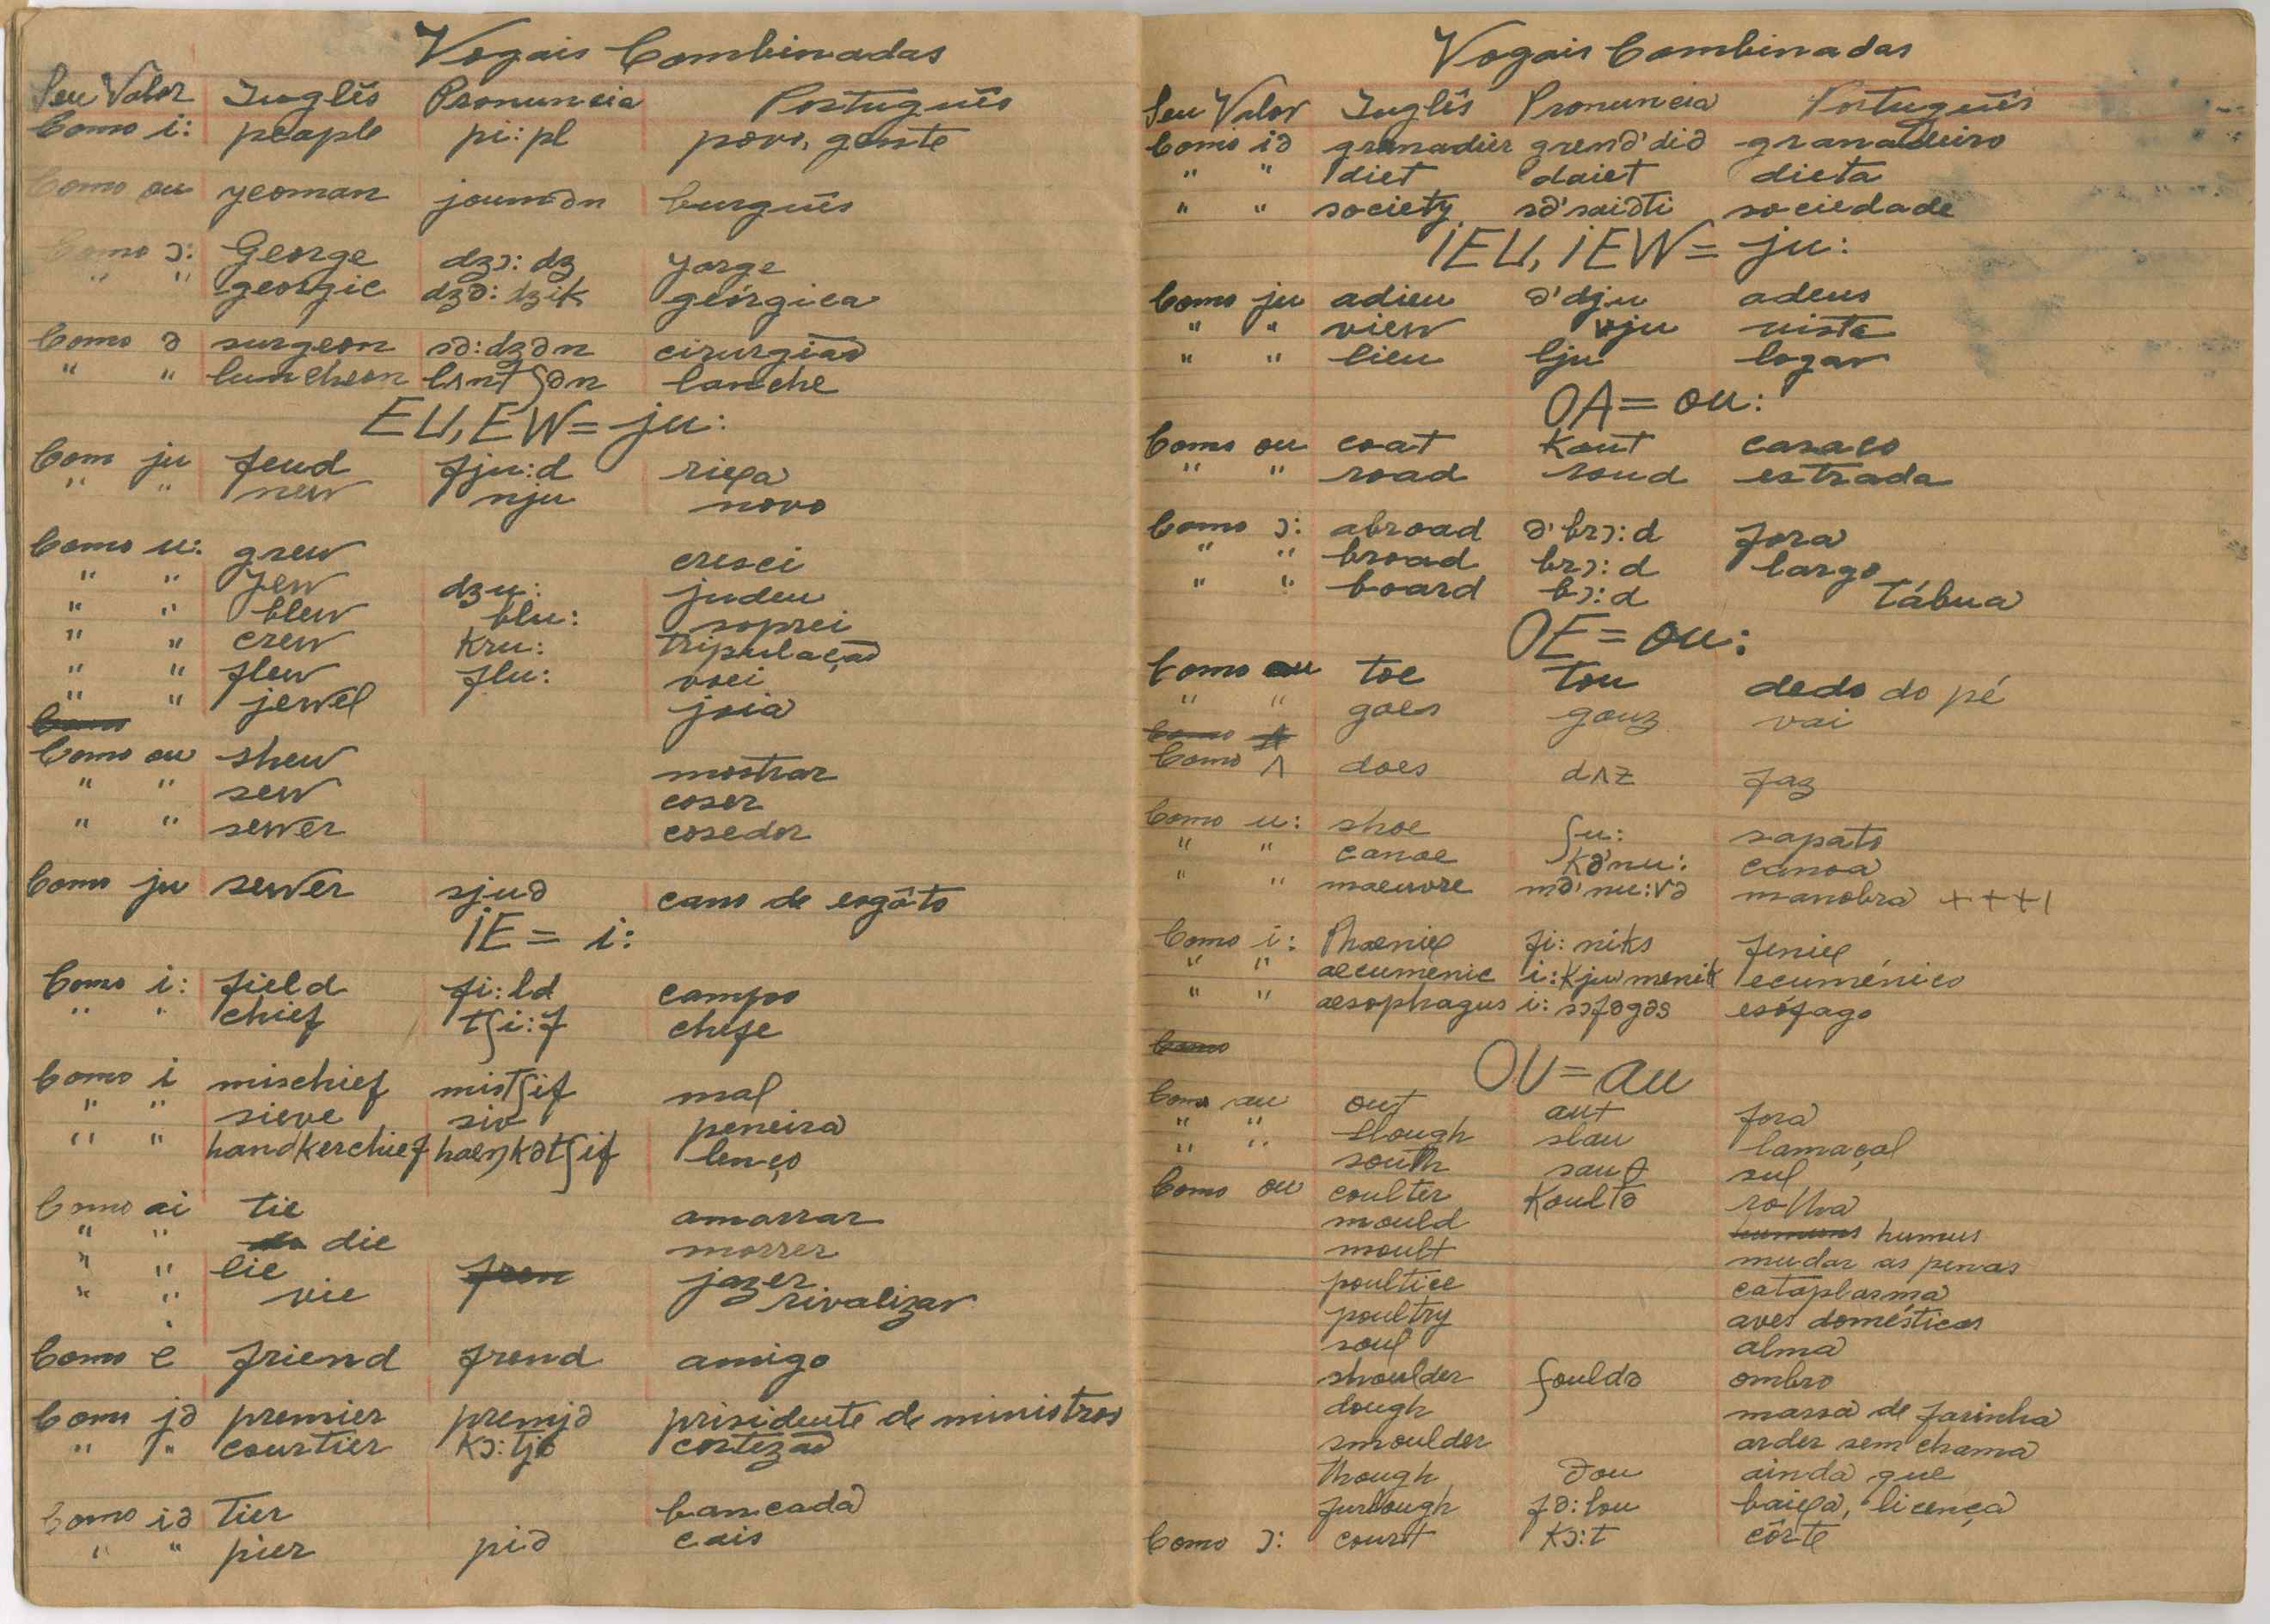 Vogais Combinadas
Seu Valor Inglês Pronuncia Português
Como i: people pi:pl povo, gente
Como ou yeoman joumən burguês
Como ɔ: George dzɔ: dz Jorge
" " georgic dzə: dzik geórgica
Como ə surgeon sə:dzən cirurgião
" " luncheon lʌntʃən lanche
EU, EW = ju:
Com ju feud fju:d rixa
" " new nju novo
Como u: grew cresci
" " Jew dzu: judeu
" " blew blu: soprei
" " crew kru: tripulação
" " flew flu: voei
" " jewel joia
Como
Como ou shew mostrar
" " sew coser
" " sewer cosedor
Como ju sewer sjuə cano de esgôto
iE = i:
Como i: field fi:ld campo
" " chief tʃi:f chefe
Como i mischief mistʃif mal
" " sieve siv peneira
" " handkerchief haeŋkətʃif lenço
Como ai tie amarrar
" " die morrer
" " lie jazer
" " vie rivalizar
Como e friend frend amigo
Como jə premier premjə prisidente de ministros
" " courtier kɔ:tjə cortezão
Como iə tier bancada
" " pier piə cais
Vogais Combinadas
Seu Valor Inglês Pronuncia Português
Como iə granadier grenə'diə granadeiro
" " diet daiet dieta
" " society sə'saiəti sociedade
iEU, iEW = ju:
Como ju adieu ə'dju adeus
" " view vju vista
" " lieu lju logar
OA = ou:
Como ou coat kout casaco
" " road roud estrada
Como ɔ: abroad ə'brɔ:d fora
" " broad brɔ:d largo
" " board bɔ:d tábua
OE = ou:
Como ou toe tou dedo do pé
" " goes gouz vai
Como
Como ʌ does dʌz faz
Como u: shoe ʃu: sapato
" " canoe kə'nu: canoa
" " maeuvre mə'nu:və manobra +++1
Como i: Phœnix fi:niks fenix
" " aecumenic i:kjumenik ecuménico
" " aesophagus i:sɔfəgəs esófago
Como
OU = au
Como au out aut fora
" " slough slau lamaçal
" " south sauθ sul
Como ou coulter koultə rolha
mould humus
moult mudar as penas
poultice cataplasma
poultry aves domésticas
soul alma
shoulder ʃouldə ombro
dough massa de farinha
smoulder arder sem chama
though ðou ainda que
furlough fə:lou baixa, licença
Como ɔ: court kɔ:t côrte